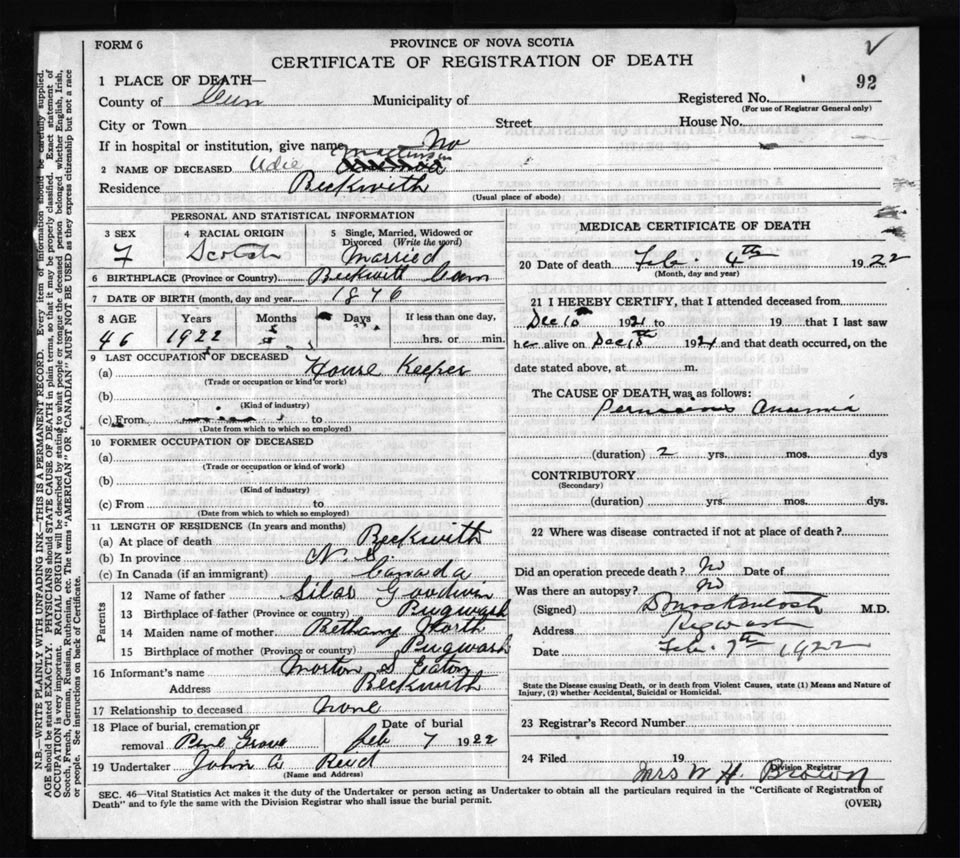 FORM 6
PROVINCE OF NOVA SCOTIA
CERTIFICATE OF REGISTRATION OF DEATH
92
1 PLACE OF DEATH—
County of Cum Municipality of Registered No.
(For use of Registrar General only)
City or Town Street House No.
If in hospital or institution, give name No
2 NAME OF DECEASED Udie
Residence Beckwith
(Usual place of abode)
PERSONAL AND STATISTICAL INFORMATION
3 SEX F
4 RACIAL ORIGIN Scotch
5 Single, Married, Widowed or Divorced (Write the word) Married
6 BIRTHPLACE (Province or Country) Beckwith Cum
7 DATE OF BIRTH (month, day and year) 1876
8 AGE Years Months Days If less than one day,
46 1922 hrs. or min.
9 LAST OCCUPATION OF DECEASED
(a) House Keeper
(Trade or occupation or kind of work)
(b)
(Kind of industry)
(c) From to
(Date from which to which so employed)
10 FORMER OCCUPATION OF DECEASED
(a)
(Trade or occupation or kind of work)
(b)
(Kind of industry)
(c) From to
(Date from which to which so employed)
11 LENGTH OF RESIDENCE (In years and months)
(a) At place of death Beckwith
(b) In province N. S.
(c) In Canada (if an immigrant) Canada
Parents
12 Name of father Silas Goodwin
13 Birthplace of father (Province or country) Pugwash
14 Maiden name of mother Bethany
15 Birthplace of mother (Province or country) Pugwash
16 Informant's name Morton S Eaton
Address Beckwith
17 Relationship to deceased none
18 Place of burial, cremation or removal Pine Grove
Date of burial Feb 7 1922
19 Undertaker John A Reid
(Name and Address)
MEDICAL CERTIFICATE OF DEATH
20 Date of death Feb. 4th 1922
(Month, day and year)
21 I HEREBY CERTIFY, that I attended deceased from
Dec 10 1921 to 19 that I last saw
her alive on Dec 1921 and that death occurred, on the
date stated above, at m.
The CAUSE OF DEATH was as follows:
Pernicious Anaemia
(duration) 2 yrs. mos. dys
CONTRIBUTORY
(Secondary)
(duration) yrs. mos. dys.
22 Where was disease contracted if not at place of death?
Did an operation precede death? No Date of
Was there an autopsy? No
(Signed) M.D.
Address Pugwash
Date Feb. 7th 1922
State the Disease causing Death, or in death from Violent Causes, state (1) Means and Nature of
Injury, (2) whether Accidental, Suicidal or Homicidal.
23 Registrar's Record Number
24 Filed 19
Mrs W H. Brown
Division Registrar
SEC. 46—Vital Statistics Act makes it the duty of the Undertaker or person acting as Undertaker to obtain all the particulars required in the "Certificate of Registration of
Death" and to fyle the same with the Division Registrar who shall issue the burial permit.
(OVER)
N.B.—WRITE PLAINLY WITH UNFADING INK—THIS IS A PERMANENT RECORD. Every item of information should be carefully supplied.
AGE should be stated EXACTLY. PHYSICIANS should STATE CAUSE OF DEATH in plain terms, so that it may be properly classified. Exact statement of
OCCUPATION is very important. RACIAL ORIGIN will be described by stating to what people or tongue the deceased person belonged whether English, Irish,
Scotch, French, German, Russian, Ruthenian, etc. The terms "AMERICAN" OR "CANADIAN" MUST NOT BE USED as they express citizenship but not a race
or people. See instructions on back of Certificate.